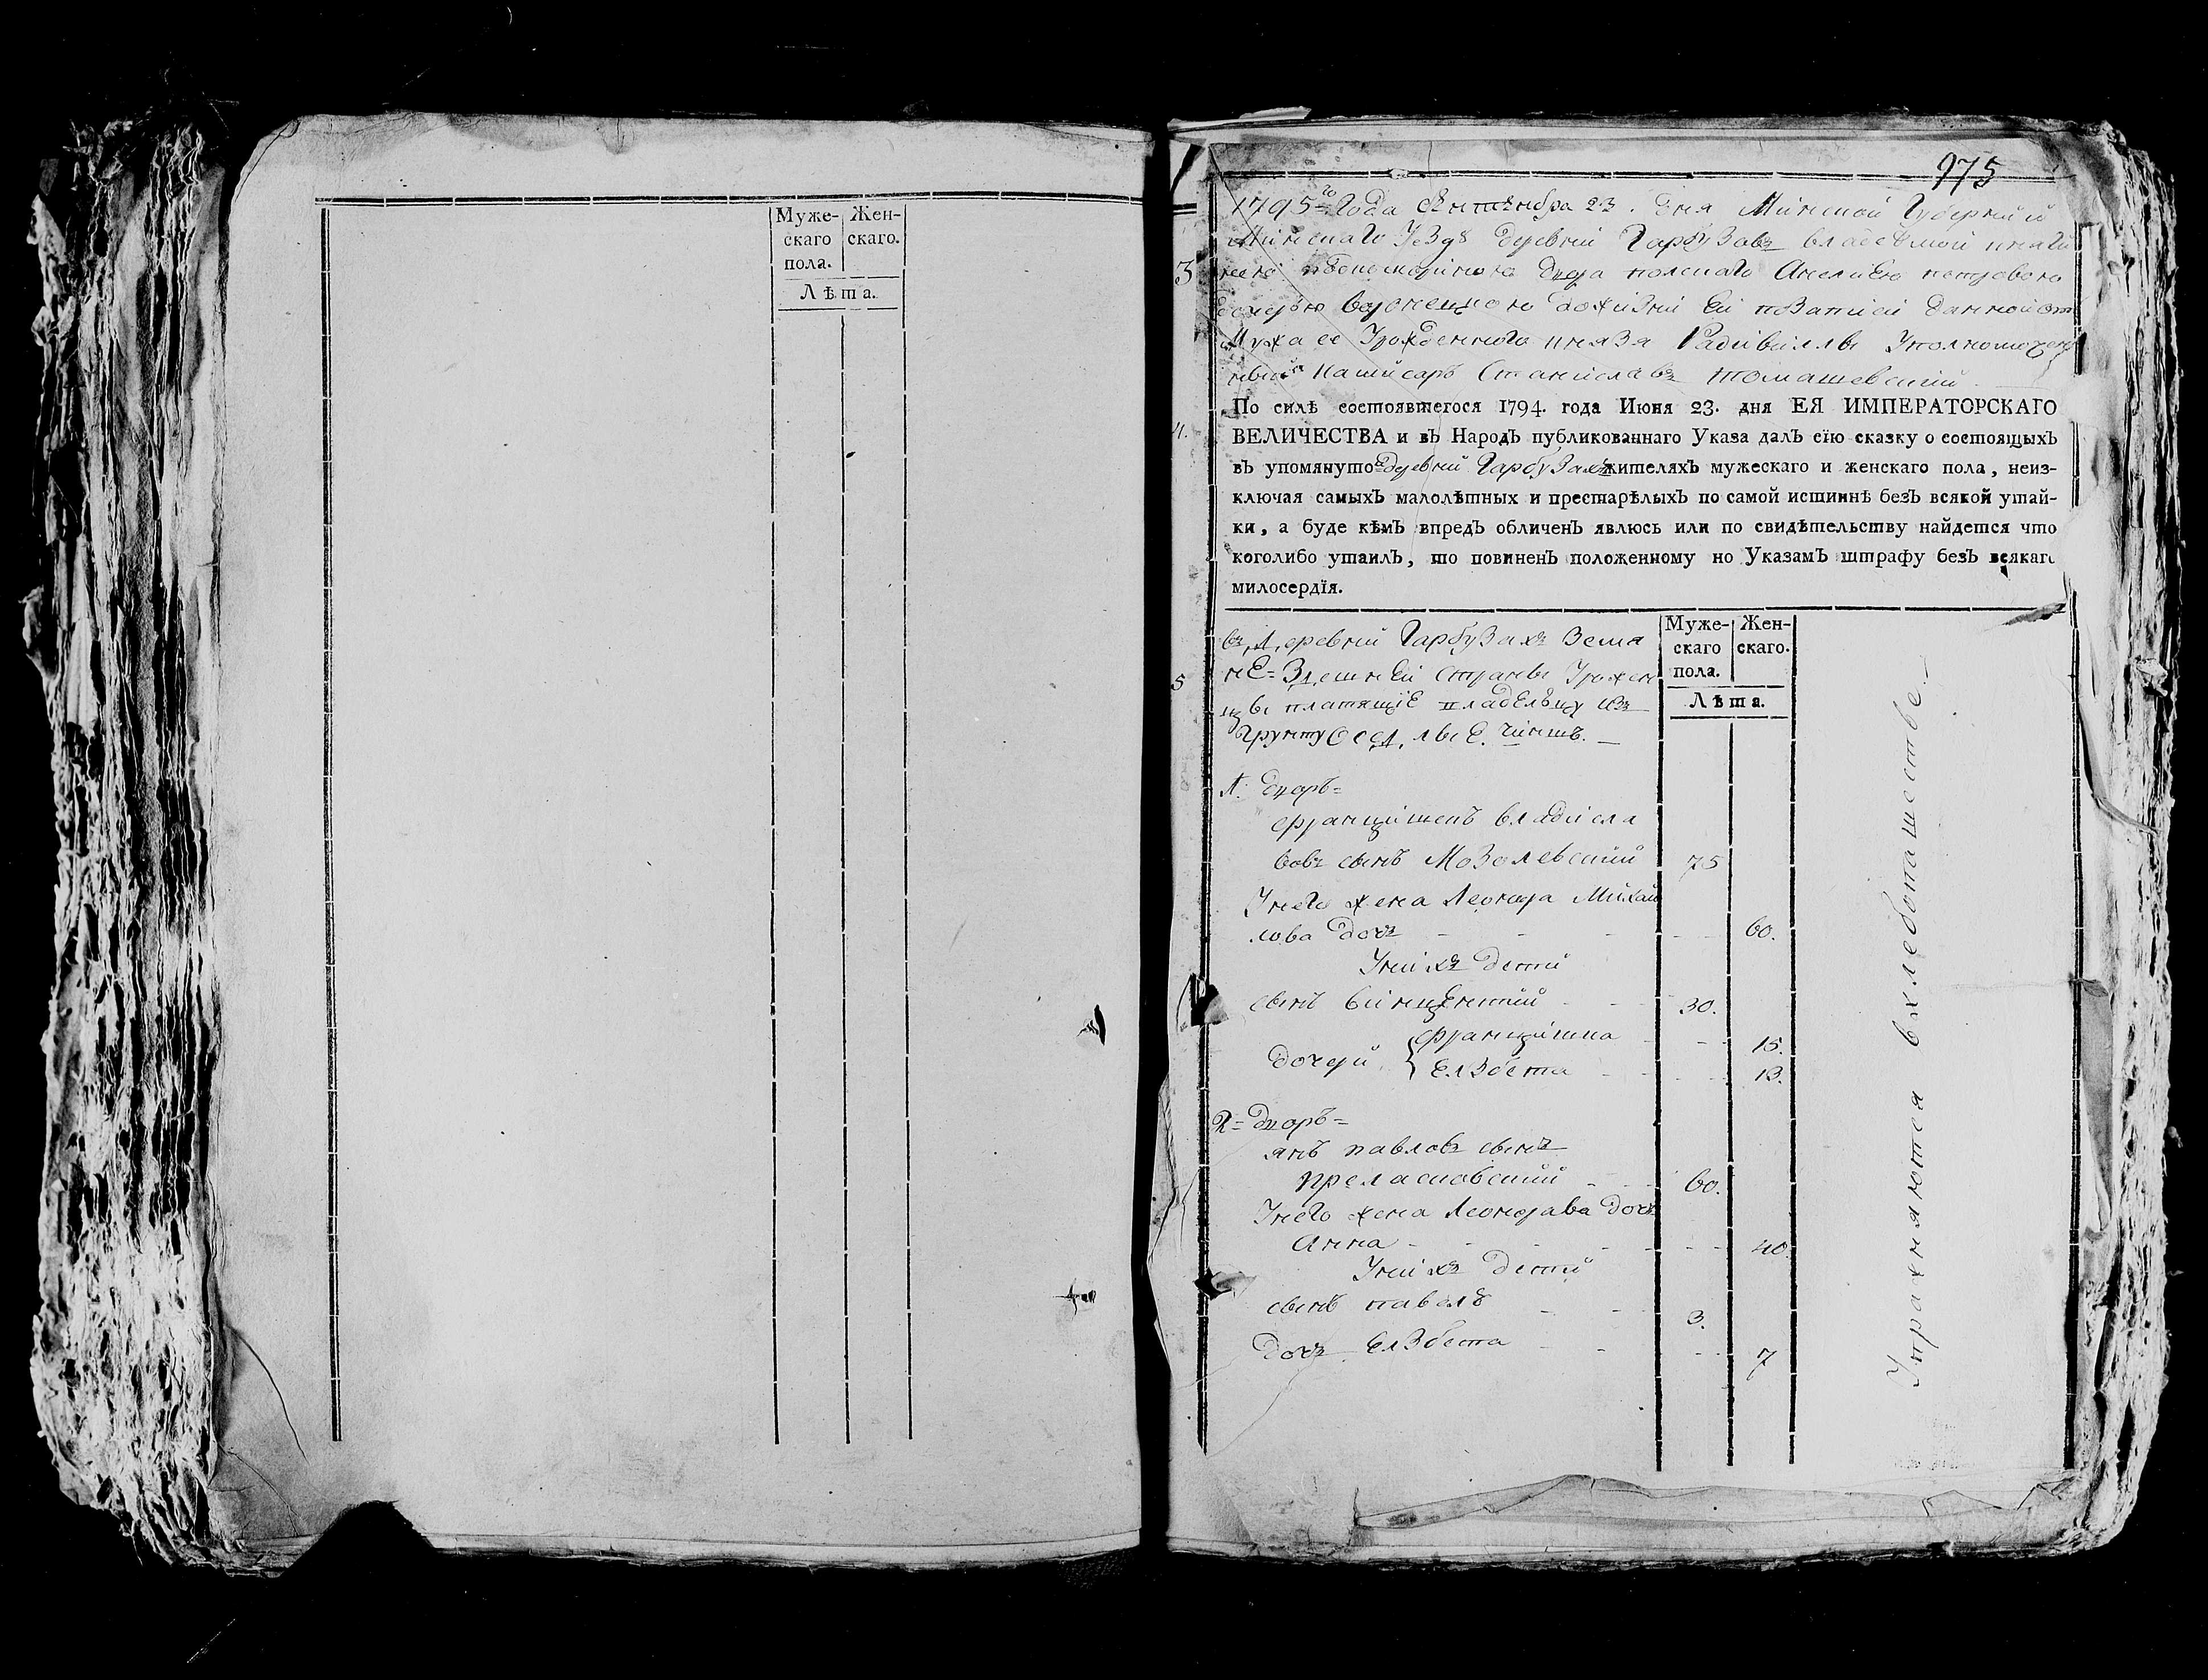 Муже-
скаго
пола.
Жен-
скаго.
Лѣта.
975
1795го Года Сентенбра 23. дня Минской Губернии
Минскаго Уезда деревни Гарбузовъ владеемой княги
нею двора полскаго Анелиею петровою
дочерью дожизни Ей позаписи данной от
Мужа ее Урожденного князя Радивиллы Уполномочен
ный Писаръ Станиславъ томашевский
3
По силѣ состоявшегося 1794. года Июня 23. дня ЕЯ ИМПЕРАТОРСКАГО
4.
ВЕЛИЧЕСТВА и вЪ НародЪ публикованнаго Указа далЪ сїю сказку о состоящыхЪ
вЪ упомянутое деревни Гарбузахъ жителяхЪ мужескаго и женскаго пола, неиз-
ключая самыхЪ малолѣтных и престарѣлыхЪ по самой истиннѣ безЪ всякой утай-
ки, а буде кѣмЪ впредЪ обличенЪ явлюсь или по свидѣтельству найдется что
коголибо утаилЪ, то повиненЪ положенному но УказамЪ штрафу безЪ всякаго
милосердїя.
Муже-
скаго
пола.
Жен-
скаго.
Лѣта.
5
въ Деревни Гарбузахъ Земя
нЕ=Здешней Страны Урожен
цы платящіЕ владЕлцу изъ
грунту Оседлые. чиншъ.
1. дворъ=
францишекъ владисла
вовъ сынъ Мозолевский 75
Унего жена Леонора Михай
лова дочъ 60.
Унихъ дети
сынъ винцентий 30.
дочери францишка 15.
Елзбета 13.
2= дворъ=
янъ павловъ сынъ
преласковский 60.
Унего жена Леонорава дочъ
Анна 40.
Унихъ дети
сынъ павелъ 3.
дочъ Елзбета 7
Упражняются вхлебопашестве.